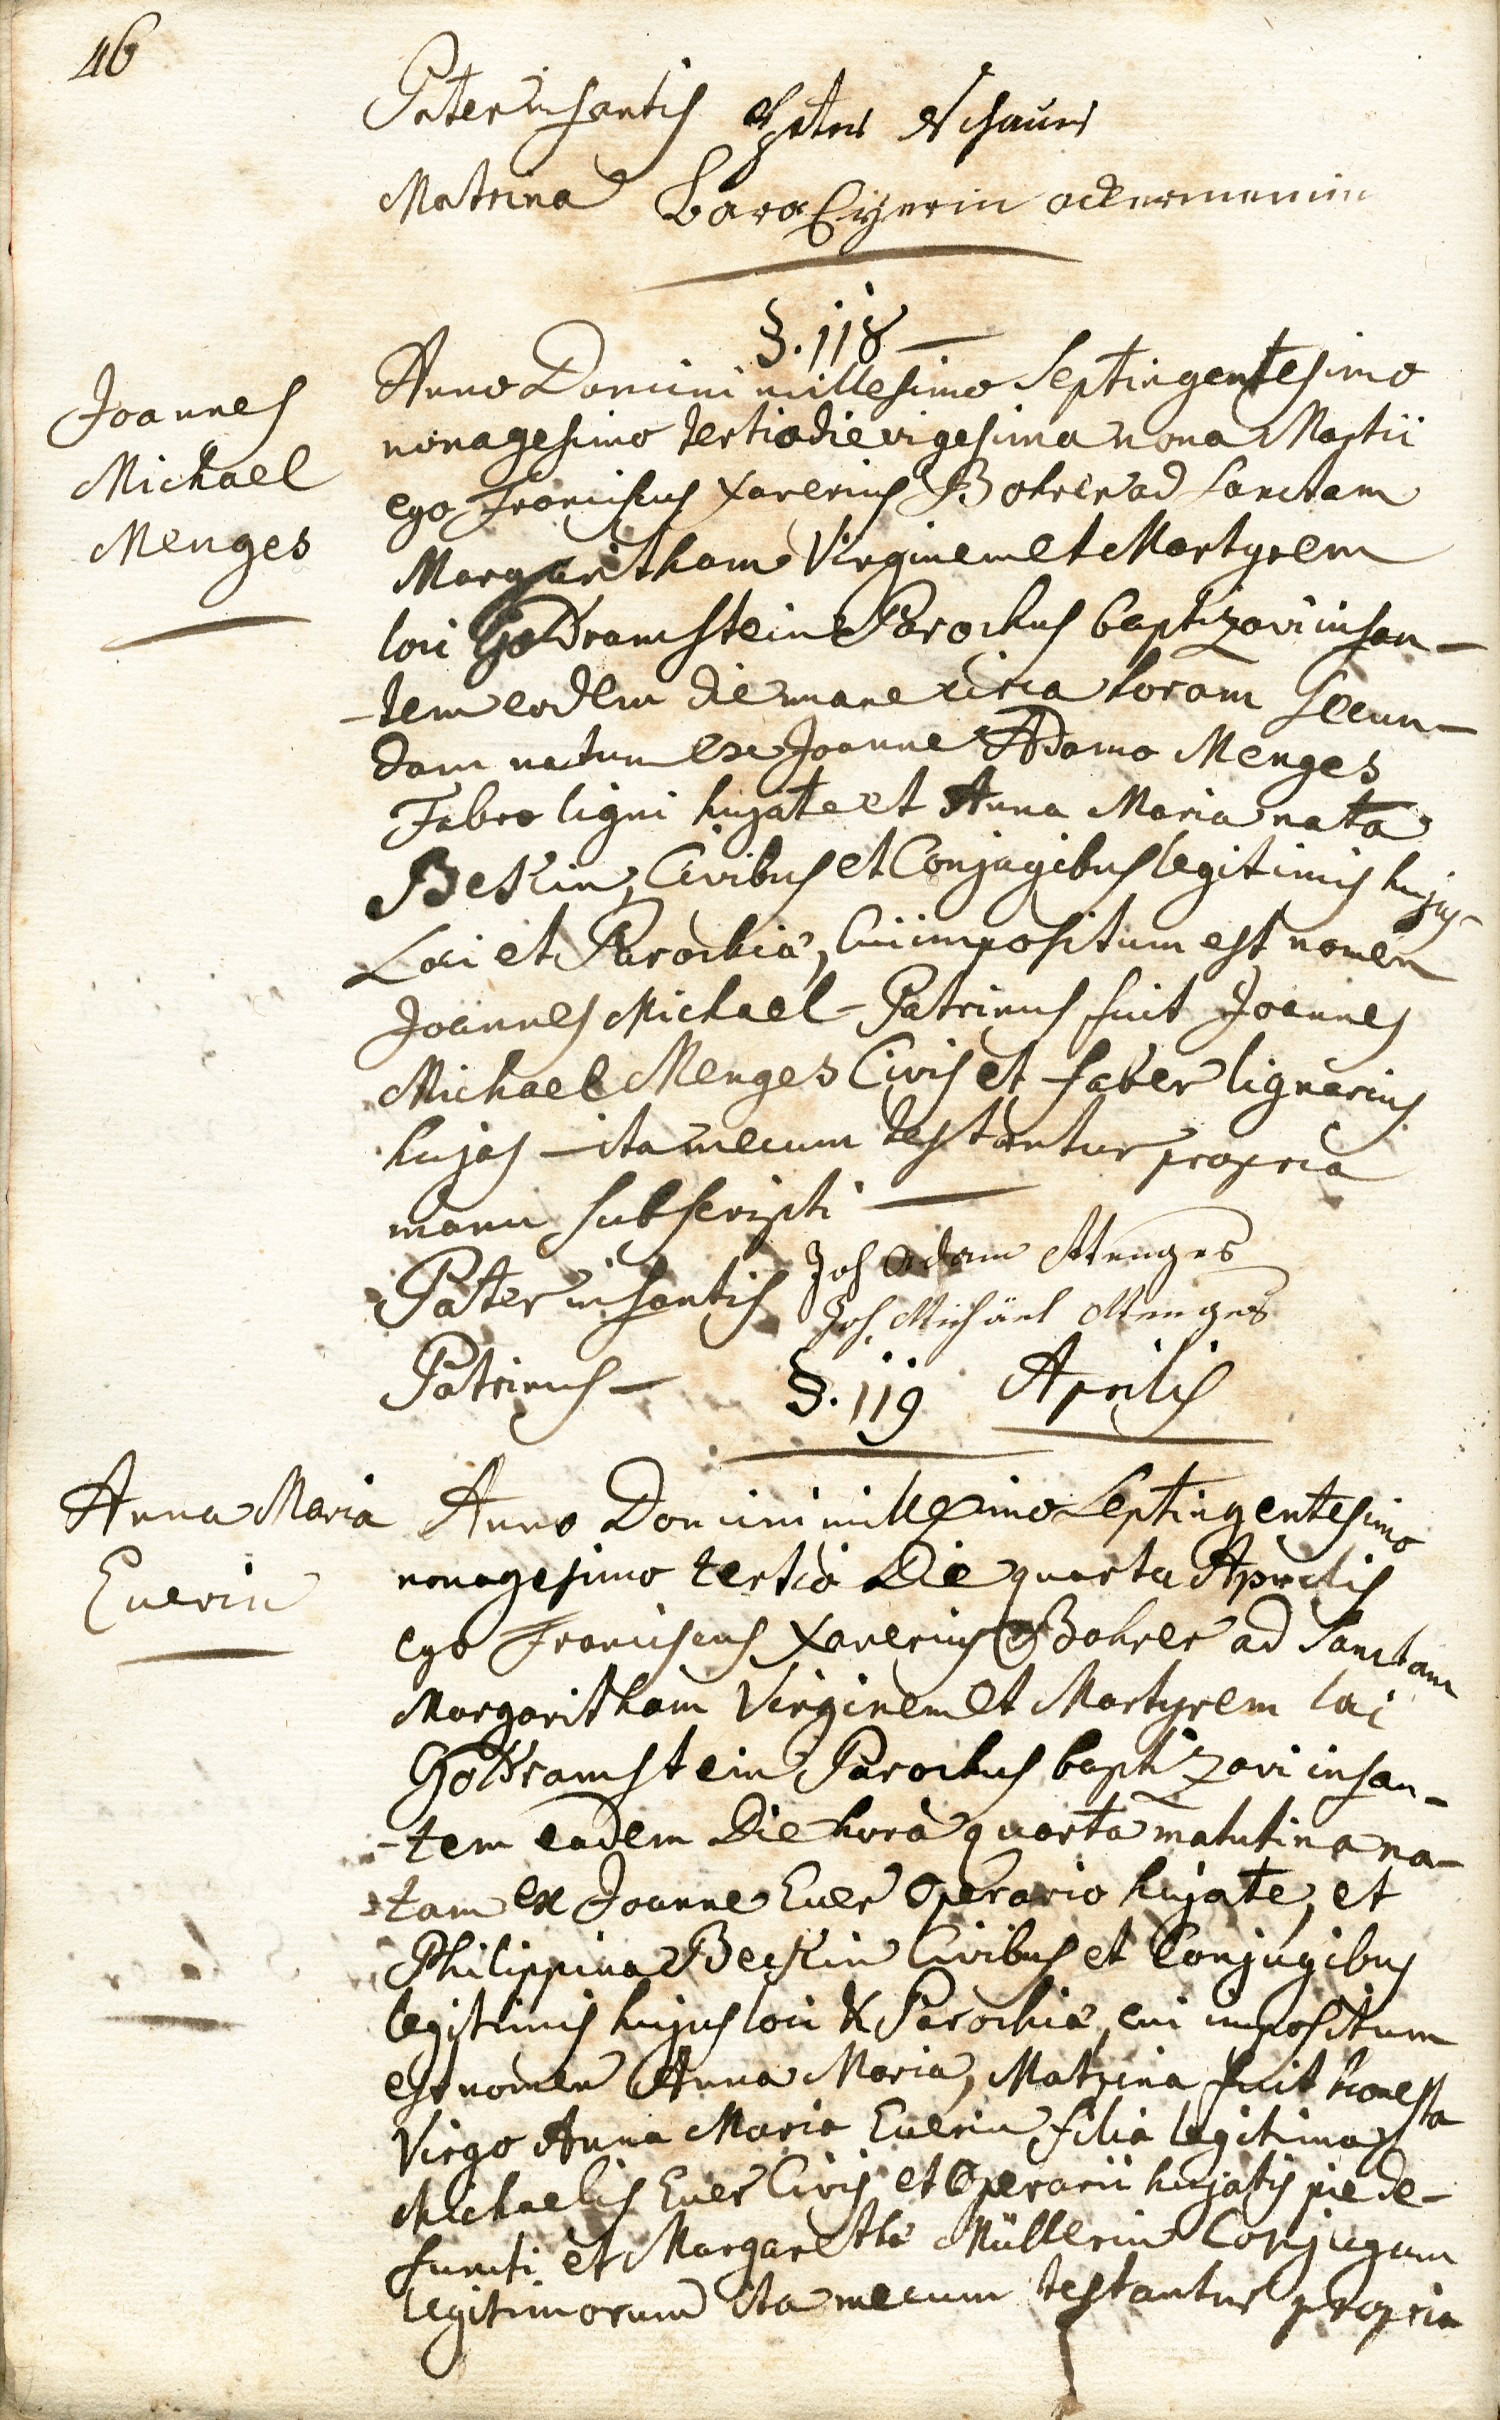 46
Pater infantis Peter Schaur
Matrina Bara Eyerin
§. 118
Joannes
Michael
Menges
Anno Domini millesimo Septingentesimo
nonagesimo tertio die vigesima nona Martii
ego Franciscus Xaverius Bohrer ad Sanctam
Margaritham Virginem et Martyrem
loci Godramstein Parochus baptizavi infan-
-tem eodem die mane circa horam secun-
dam natum ex Joanne Adamo Menges
Fabro ligni hujate et Anna Maria nata
Bekin, Civibus et Conjugibus legitimis hujus
Loci et Parochiæ, cui impositum est nomen
Joannes Michael - Patrinus fuit Joannes
Michael Menges Civis et faber lignarius
hujas - ita mecum testantur propria
manu subscripti
Pater infantis Joh Adam Menges
Joh. Michäel Menges
Patrinus -
§. 119 Aprilis
Anna Maria
Euerin
Anno Domini millesimo Septingentesimo
nonagesimo tertio Die quarta Aprilis
ego Franciscus Xaverius Bohrer ad Sanctam
Margaritham Virginem et Martyrem loci
Godramstein Parochus baptizavi infan-
-tem eadem Die hora quarta matutina na-
-tam ex Joanne Euer Operario hujate, et
Philippina Beckin Civibus et Conjugibus
legitimis hujus loci & Parochiæ, cui impositum
est nomen Anna Maria, Matrina fuit honesta
Virgo Anna Maria Euerin filia legitima
Michaelis Euer Civis et Operarii hujatis pie de-
functi et Margarethæ Müllerin Conjugum
legitimorum ita mecum testantur propria